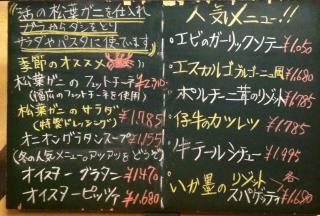 活の松葉ガニを仕入れ
ガラからダシをとり
サラダやパスタに使ています
季節のオススメ
松葉ガニのフェットチーネ ¥2,310
(幅広のフェットチーネを使用)
松葉ガニのサラダ
(特製ドレッシング) ¥1,985
オニオングラタンスープ ¥1,155
(冬の人気メニューのアツアツをどうぞ)
オイスターグラタン ¥1,470
オイスターピッツァ ¥1,680
人気メニュー!!
・エビのガーリックソテー ¥1,050
・エスカルゴブルゴーニュ風 ¥1,680
・ポルチーニ茸のリゾット ¥1,785
・仔牛のカツレツ ¥1,785
・牛テールシチュー ¥1,995
・いか墨のリゾット 各
スパゲッティ ¥1,680